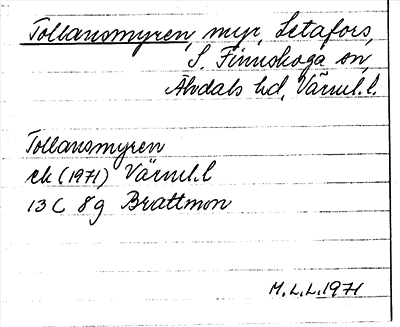 Tollansmyren, myr, Letafors,
S. Finnskoga sn,
Älvdals hd, Värml.l.
Tollansmyren
ek (1971) Värml.l
13 C 8g Brattmon
M.L.L.1971